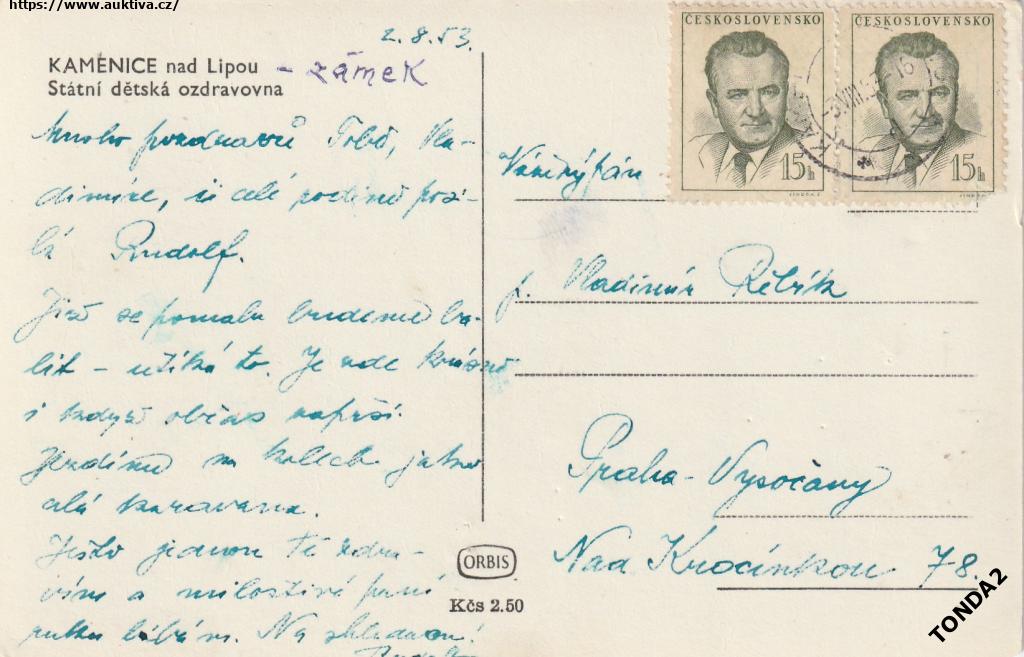 https://www.auktiva.cz/
2. 8. 53.
KAMENICE nad Lipou - zámek
Státní dětská ozdravovna
Mnoho pozdravů Tobě, Vla-
dimíre, i celé rodině posí-
lá Rudolf.
Již se pomalu budeme ba-
lit - utíká to. Je zde krásně
i když občas naprší.
Jezdíme na kolech jako
celá karavana.
Ještě jednou Tě zdra-
vím a milostivé paní
ruku líbám. Na shledanou!
Rudolf
ČESKOSLOVENSKO
15h
ČESKOSLOVENSKO
15h
Vážený pán
p. Vladimír Řebřík
Praha - Vysočany
Nad Krocínkou 78.
ORBIS
Kčs 2.50
TONDA2